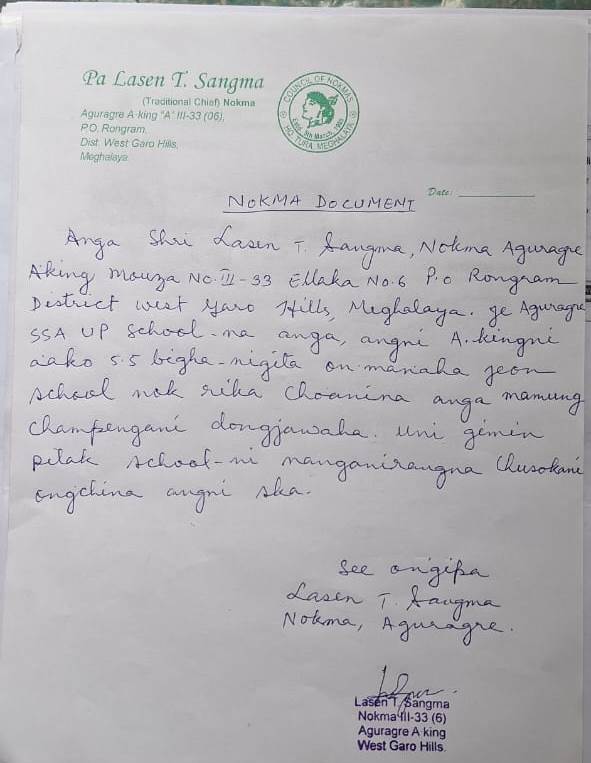 Pa Lasen T. Sangma
(Traditional Chief) Nokma
Aguragre A·king "A" III-33 (06),
P.O. Rongram,
Dist. West Garo Hills,
Meghalaya.
COUNCIL OF NOKMAS
HQ. TURA, MEGHALAYA
Date:
NOKMA DOCUMENT
Anga Shri Lasen T. Sangma, Nokma Aguragre
A·king Mouza No. III-33 Ellaka No. 6 P.o Rongram
District West Garo Hills, Meghalaya. ge Aguragre
SSA UP School-na anga, angni A·kingni
a·ako 5.5 bigha-nigita on·manaha jeon
school nok rika cho·anina anga mamung
champengani dongjawaha. Uni gimin
pilak school-ni nanganirangna chusokani
ongchina angni ska.
See on·gipa
Lasen T. Sangma
Nokma, Aguragre.
Lasen T. Sangma
Nokma III-33 (6)
Aguragre A·king
West Garo Hills.